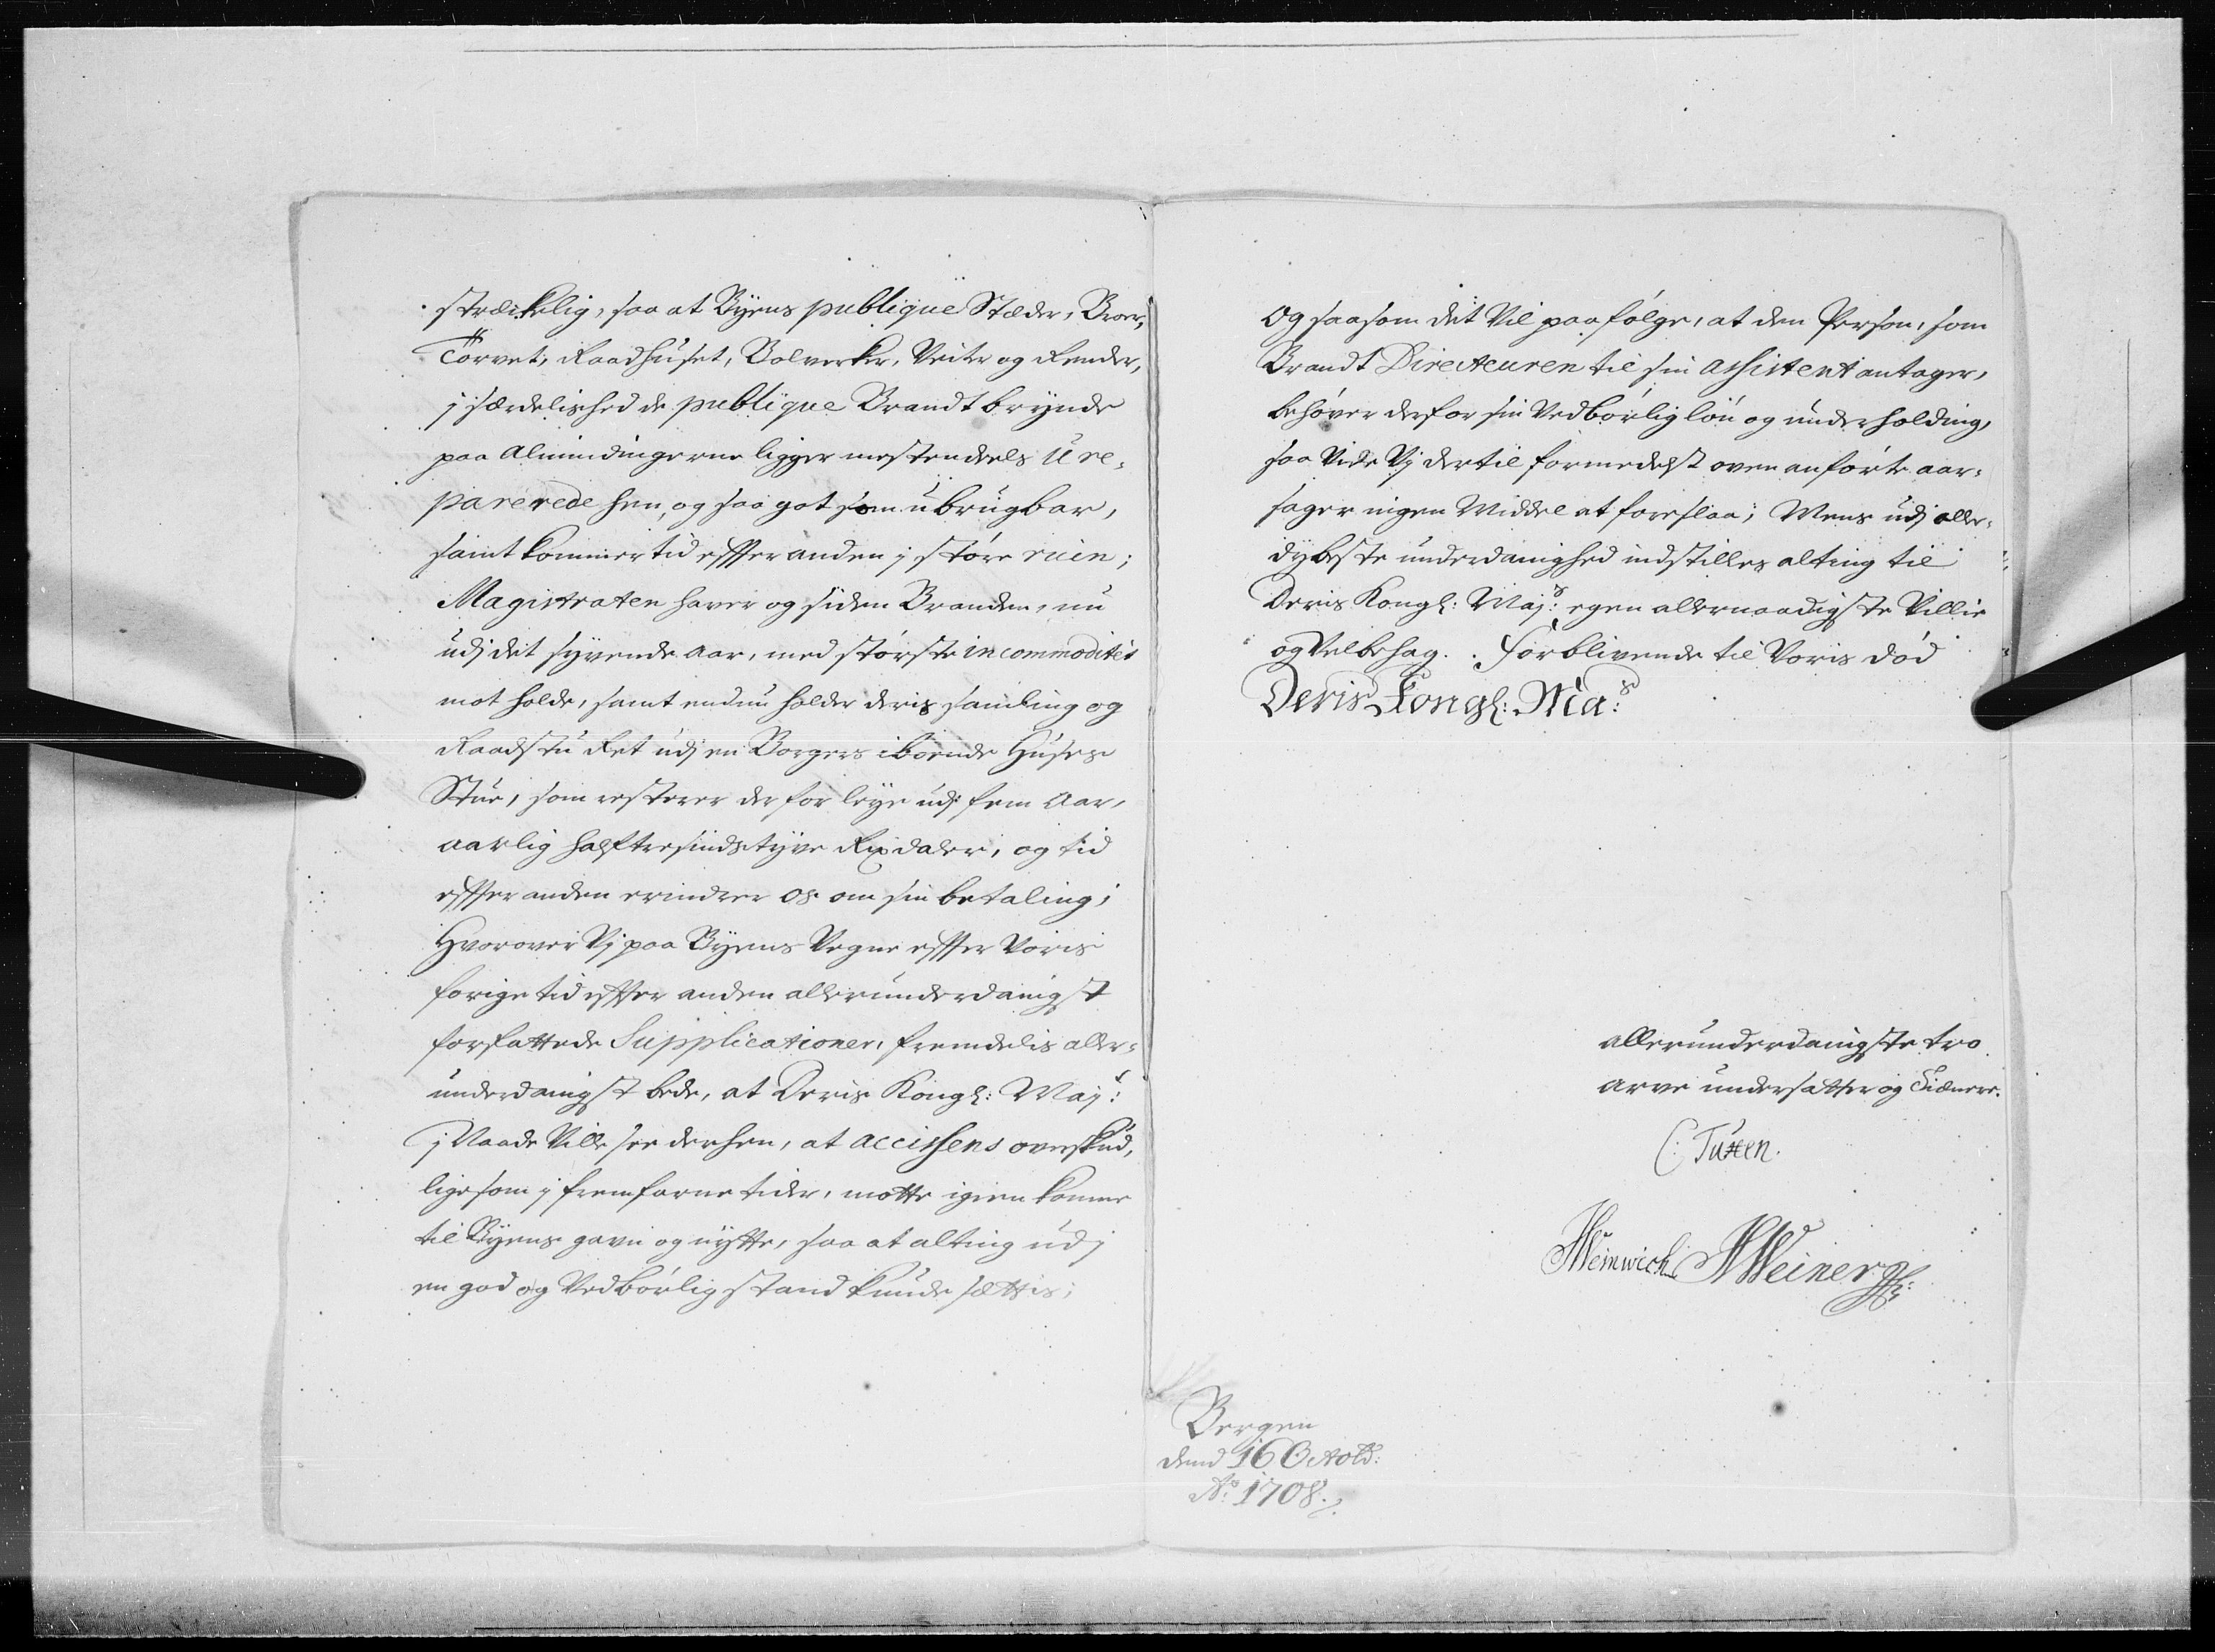 strækelig, saa at Byens publiqve Stæder, Broer,
Torvet, Raadhuset, Bolverker, Veite og Render,
j særdelished de publiqve Brandt brynde
paa Almindingerne ligger mestendeels U re-
parerede hen, og saa got som ubrugbar,
samt kommer tid effter anden j støre ruin;
Magistraten haver og siden Branden, nu
udj det syvende Aar, med største incommoditet
mot holde, samt endnu holder deris samling og
Raadstu Ret udj en Borgers iboende Huses
Stue, som resterer der for leye udj fem Aar,
aarlig halftresindstyve Rixdaler, og tid
effter anden erindrer os om sin betaling;
Hvorover Vj paa Byens Vegne effter Voris
forige tid effter anden allerunderdanigst
forfattede Supplicationer, fremdelis aller-
underdanigst bede, at Deris Kongl: Maj:t
j Naade Ville see derhen, at accissens overskud,
ligesom j fremfarne tider, motte igien komme
til Byens gavn og nytte, saa at alting udj
en god og Vedbørlig stand kunde sættis;
Og saasom det Vil paafølge, at den Person, som
Brandt Directeuren til sin assistent antager,
behøver derfor sin Vedbørlig løn og underholding,
saa Vide Vj dertil formedelst oven anførte aar-
sager ingen Middel at foreslaa; Mens udj aller-
dybeste underdanighed indstilles alting til
Deris Kongl: Maj:s egen allernaadigste Villie
og Velbehag. Forblivende til Voris død
Deris Kongl: Ma:s
allerunderdanigste tro
arve undersatter og Tienere.
C: Tuxen.
HWeinwich HWeiner
Bergen
dend 16 Octob:
A:o 1708.